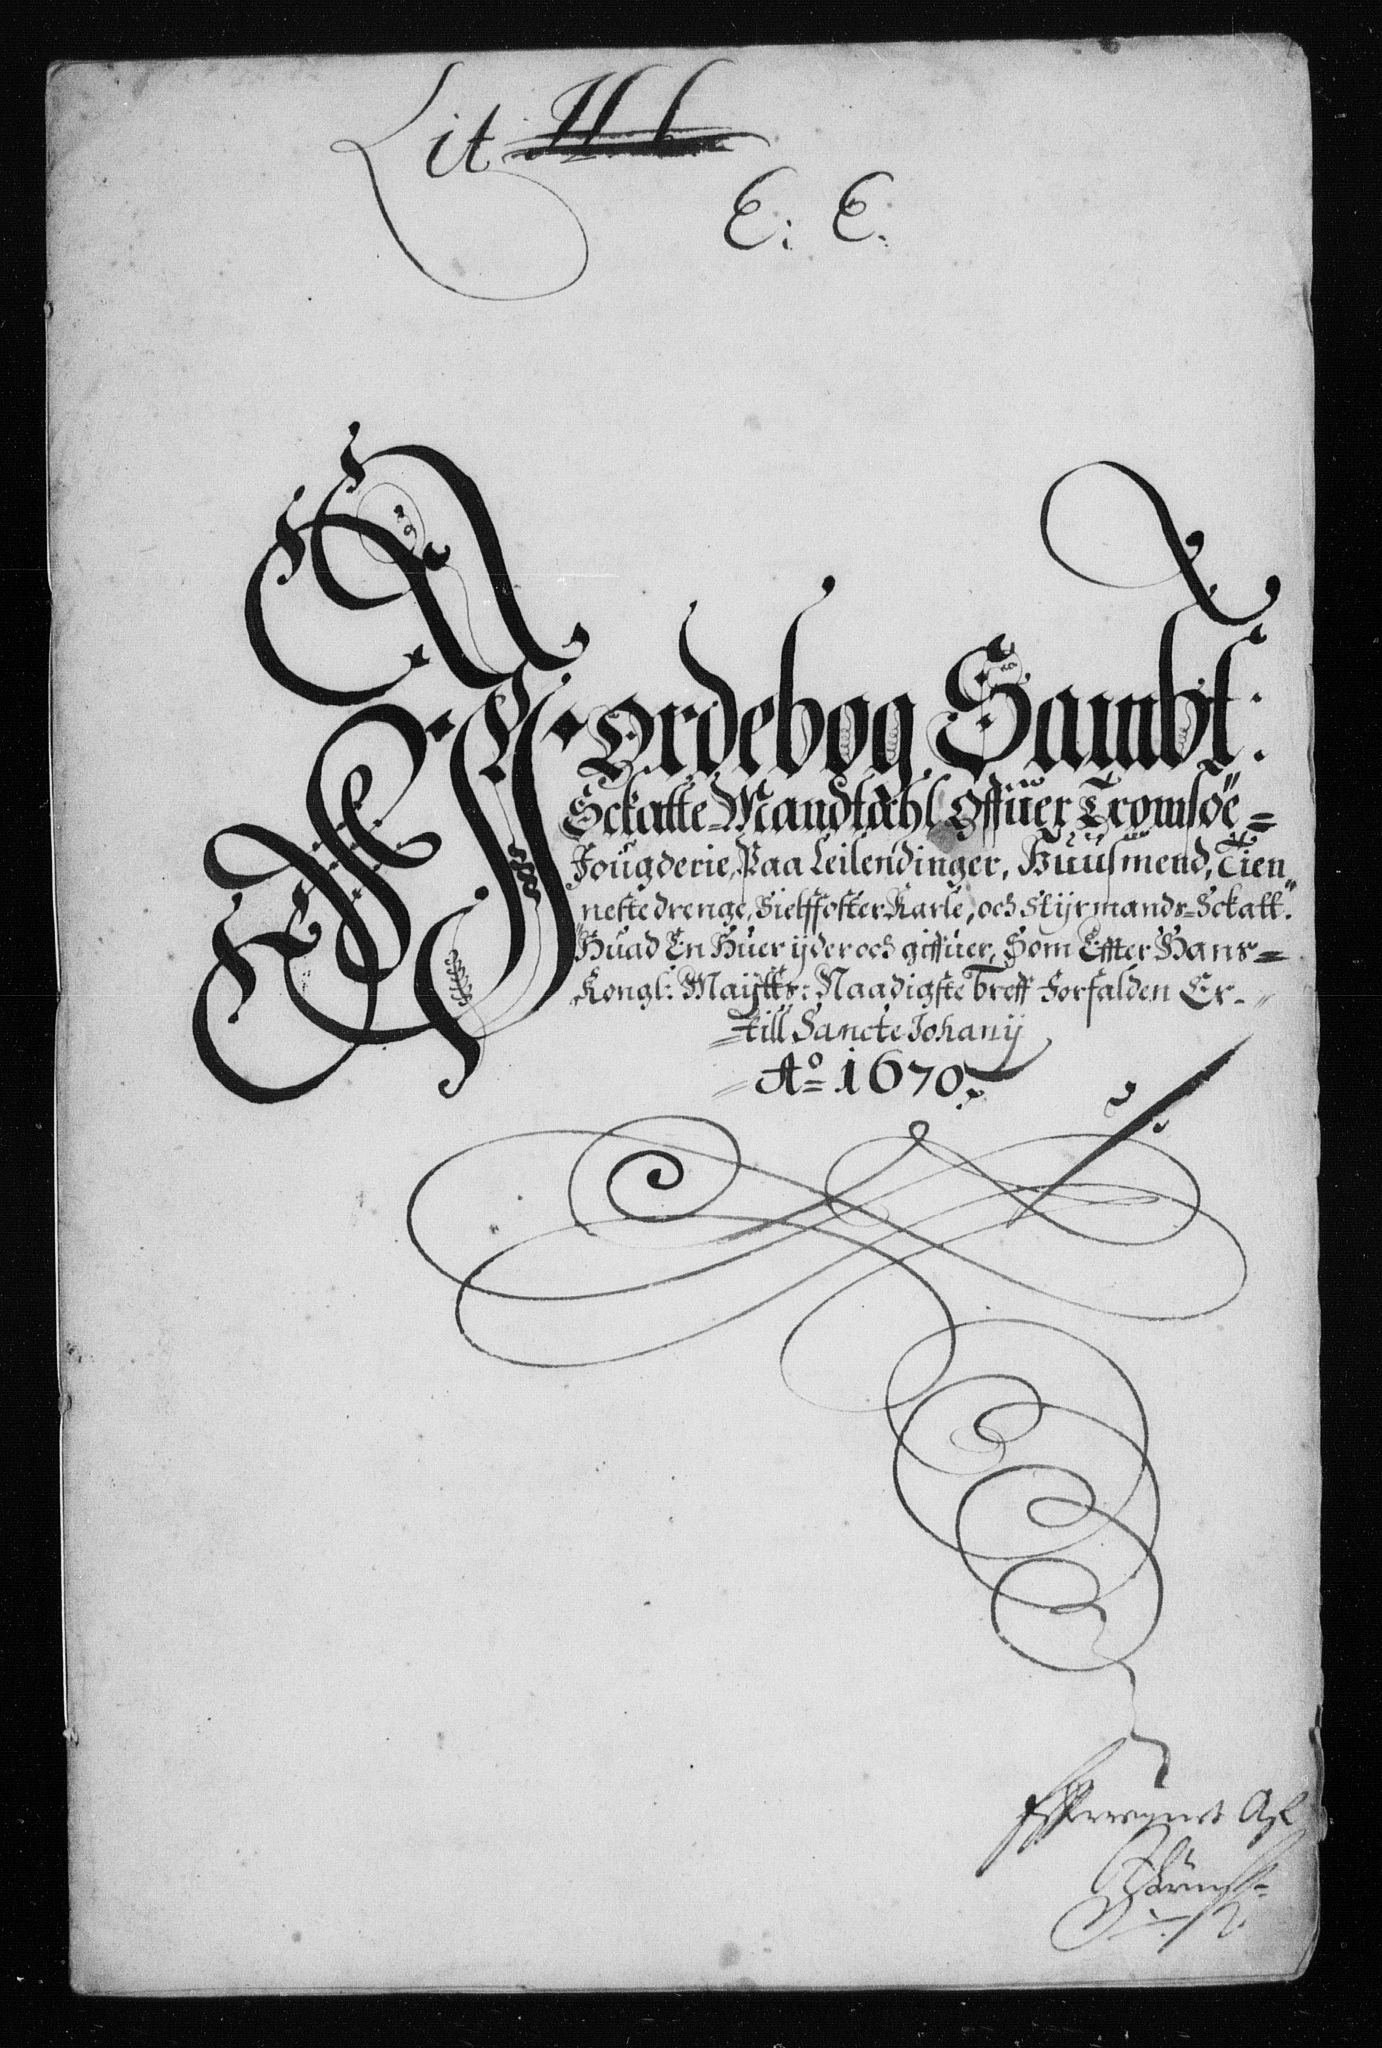 Lit: H b
E: E:
Jordebog Sambt:
Sckatte-Mandtahl Offuer Tromsøe-
Fougderie, Paa Leilendinger, Huusmend, Tien
nestedrenge, Sielffoster Karle, och Styrmands-Sckatt.
Huad En Huer yder och giffuer, Som Effter Hans-
Kongl: Maytts: Naadigste Breff Forfalden Er-
till Sancte Johany
Ao 1670.
Efterregnet Af